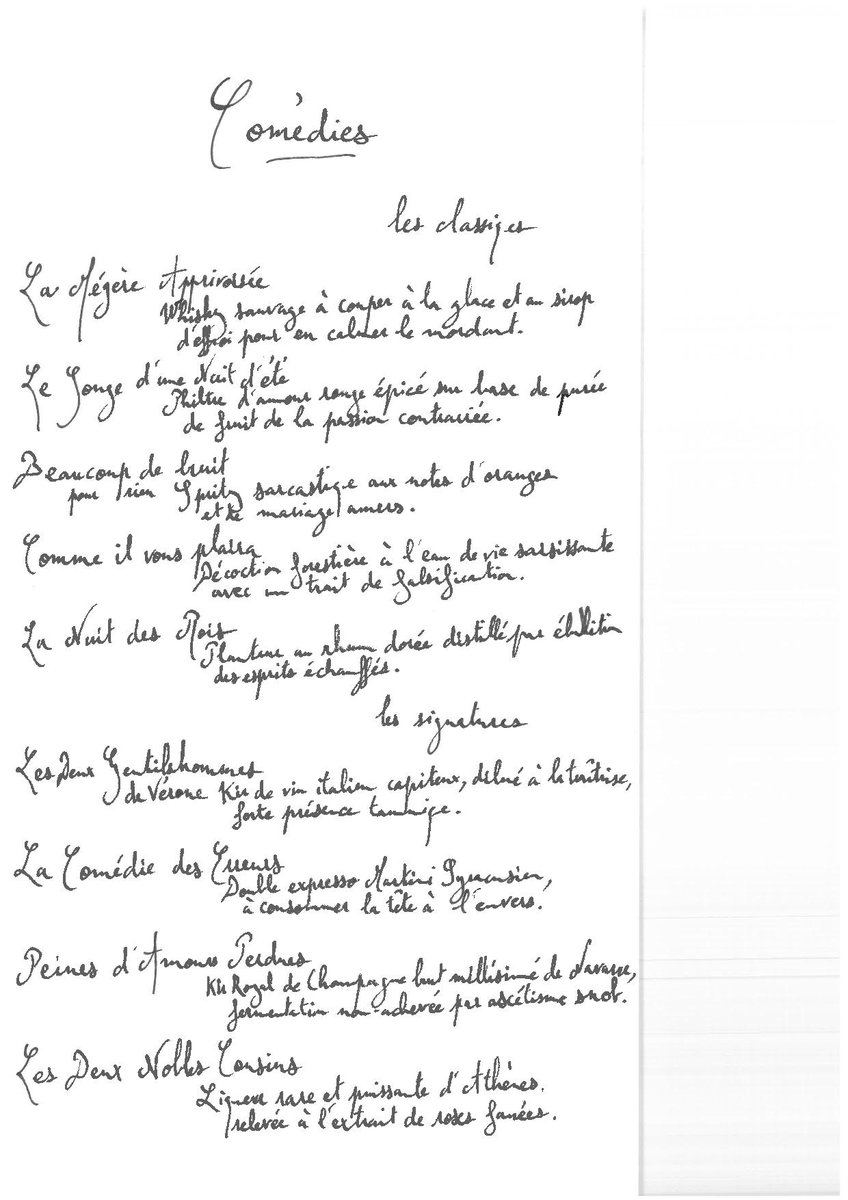 Comédies
les classiqes
La Mégère Apprivoisée
Whisky sauvage à couper à la glace et au sirop
d'effroi pour en calmer le mordant.
Le Songe d'une Nuit d'été
Philtre d'amour rouge épicé sur base de purée
de fruit de la passion contrariée.
Beaucoup de bruit
pour rien Spritz sarcastiqe aux notes d'oranges
et de mariage amers.
Comme il vous plaira
Décoction forestière à l'eau de vie saisissante
avec un trait de falsification.
La Nuit des Rois
Planteur au rhum dorée distillé par ébullition
des esprits échauffés.
les signatures
Les Deux Gentilshommes
de Vérone Kir de vin italien capiteux, dilué à la traîtrise,
forte présence tanniqe.
La Comédie des Erreurs
Double expresso Martini Syracusien,
à consommer la tête à l'envers.
Peines d'Amour Perdues
Kir Royal de Champagne brut millésimé de Navarre,
fermentation non-achevée par ascétisme snob.
Les Deux Nobles Cousins
Liqueur rare et puissante d'Athènes.
relevée à l'extrait de roses fanées.